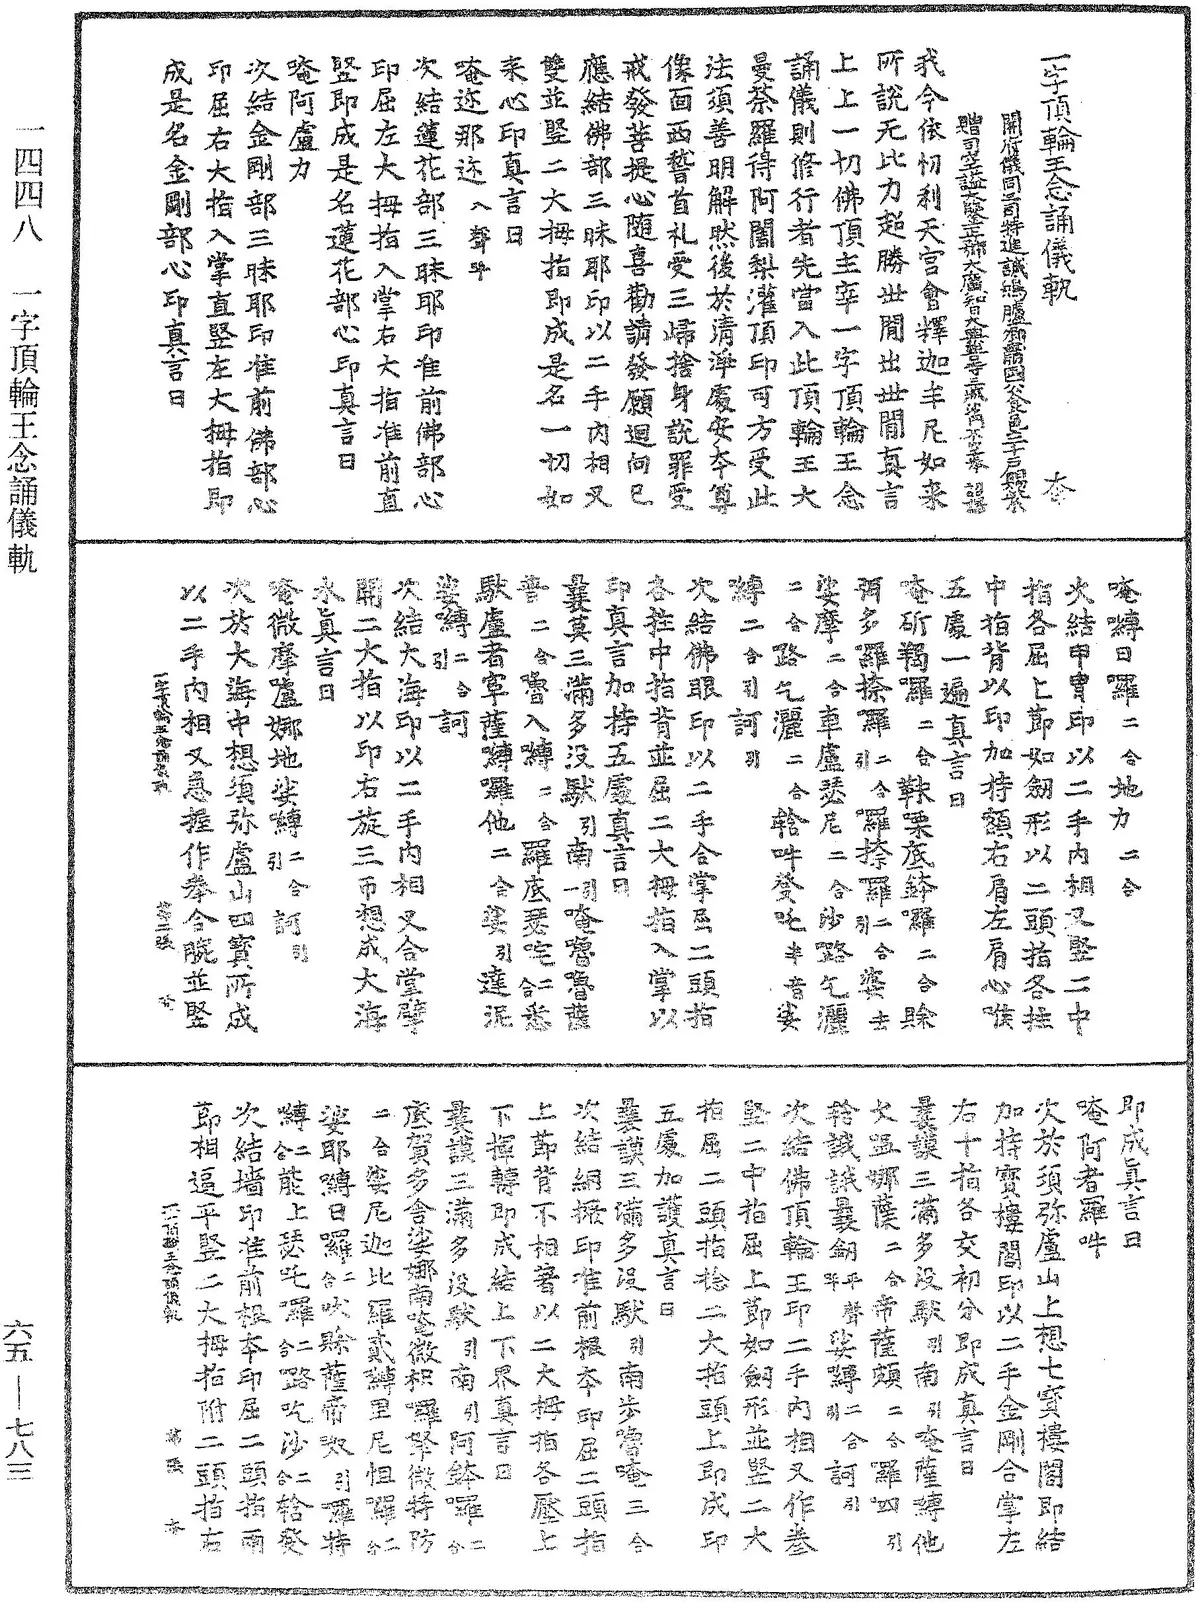 一字頂輪王念誦儀軌 夲
開府儀同三司特進試鴻臚卿肅國公食邑三千戶賜紫
贈司空謚大鑒正号大廣智大興善寺三藏沙門不空奉 詔譯
我今依忉利天宮會釋迦牟尼如来
所說无比力超勝世間出世間真言
上上一切佛頂主宰一字頂輪王念
誦儀則修行者先當入此頂輪王大
曼荼羅得阿闍梨灌頂印可方受此
法須善明解然後於清淨處安夲尊
像面西稽首礼受三歸捨身說罪受
戒發菩提心隨喜勸請發願迴向已
應結佛部三昧耶印以二手內相叉
雙並竪二大拇指即成是名一切如
来心印真言曰
唵迩那迩入聲呼
次結蓮花部三昧耶印准前佛部心
印屈左大拇指入掌右大指准前直
竪即成是名蓮花部心印真言曰
唵阿盧力
次結金剛部三昧耶印准前佛部心
印屈右大指入掌直竪左大拇指即
成是名金剛部心印真言曰
唵嚩日囉二合地力二合
次結甲冑印以二手內相叉竪二中
指各屈上節如劒形以二頭指各拄
中指背以印加持額右肩左肩心喉
五處一遍真言曰
唵斫羯囉二合靺㗚底鉢囉二合賒
弭多羅捺羅引二合羅捺羅二合娑去
娑摩二合車盧瑟尼二合沙路乞灑
二合路乞灑二合鎋吽發吒半音娑
嚩二合引訶引
次結佛眼印以二手合掌屈二頭指
各拄中指背並屈二大拇指入掌以
印真言加持五處真言曰
曩莫三滿多没馱引南引一唵嚕嚕薩
普二合嚕入嚩二合羅底瑟咤二合悉
馱盧者寧薩嚩囉他二合娑引達泥
娑嚩二合引訶
次結大海印以二手內相叉合掌擘
開二大指以印右旋三帀想成大海
水真言曰
唵微摩盧娜地娑嚩二合引訶引
次於大海中想須弥盧山四寶所成
以二手內相叉急握作拳合腕並竪
一字頂輪王念誦儀軌 第二張 夲
即成真言曰
唵阿者羅吽
次於須弥盧山上想七寶樓閣即結
加持寶樓閣印以二手金剛合掌左
右十指各交初分即成真言曰
曩謨三滿多没馱引南引唵薩嚩他
欠嗢娜蘖二合帝薩頗二合羅四引
鎋誐誐曩劒平聲呼娑嚩二合引訶引
次結佛頂輪王印二手內相叉作拳
竪二中指屈上節如劒形並竪二大
指屈二頭指捻二大指頭上即成印
五處加護真言曰
曩謨三滿多没馱引南步嚕唵三合
次結網橛印准前根夲印屈二頭指
上節背不相著以二大拇指各壓上
下揮轉即成結上下界真言曰
曩謨三滿多没馱引南引阿鉢囉二合
底賀多舍娑娜南唵微枳囉拏微特防
二合娑尼迦比羅貳嚩里尼怛囉二合
娑耶嚩日囉二合吠賒薩帝奴引囉特
嚩二合能上瑟吒囉二合路吃沙二合鎋發
次結墻印准前根夲印屈二頭指兩
節相逼平竪二大拇指附二頭指右
一字頂輪王念誦儀軌 第三張 夲
一四四八 一字頂輪王念誦儀軌
六五—七八三